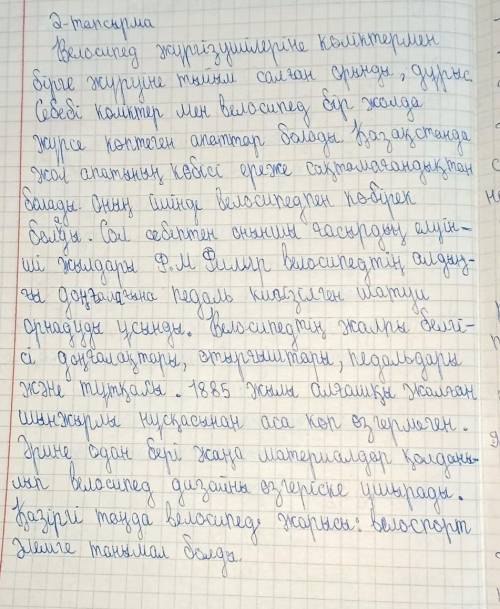 2-тапсырма
Велосипед жүргізушілеріне көліктермен
бірге жүруіне тыйым салған орынды, дұрыс.
Себебі көліктер мен велосипед бір жолда
жүрсе көптеген апаттар болады. Қазақстанда
жол апатының көбісі ереже сақтамағандықтан
болады. Оның ішінде велосипедпен көбірек
болады. Сол себептен оныншы ғасырдың елуін-
ші жылдары Ф.М Филлер велосипедтің алдың-
ғы доңғалағына педаль кигізілген шатун
орнадуды ұсынды. Велосипедтің жалпы белгі-
сі доңғалақтары, отырғыштары, педальдары
және тұтқалы. 1885 жылы алғашқы жалған
шынжырлы нұсқасынан аса көп өзгермеген.
Әрине одан бері жаңа материалдар қолданы-
лып велосипед дизайны өзгеріске ұшырады.
Қазіргі таңда велосипед: жарысы: велоспорт
әлемге танымал болды